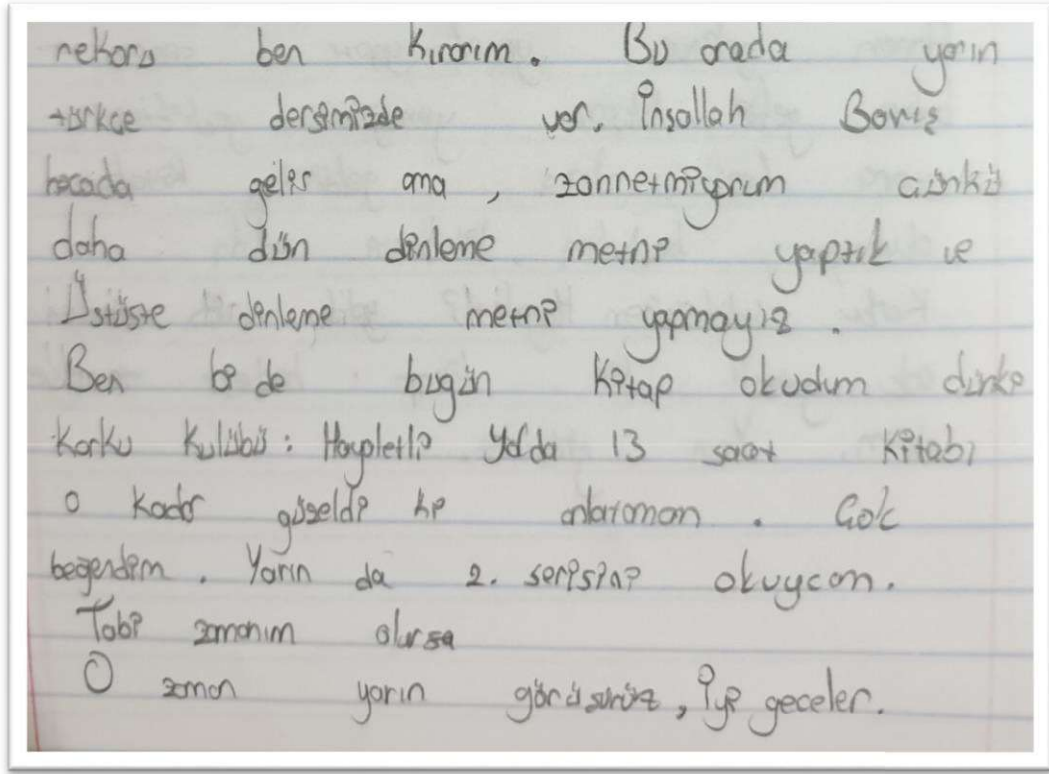 rekoru ben kırarım. Bu arada yarın
türkce dersimizde var. İnsallah Barış
hocada gelir ama, zannetmiyorum cünkü
daha dün dinleme metni yaptık ve
Üstüste dinleme metni yapmayız.
Ben bi de bugün kitap okudum dünkü
Korku Kulübü: Hayaletli Yolda 13 saat kitabı
o kadar güzeldi ki anlatamam. Cok
begendim. Yarın da 2. serisini okuycam.
Tabi zamanım olursa
O zaman yarın görüsürüz, İyi geceler.